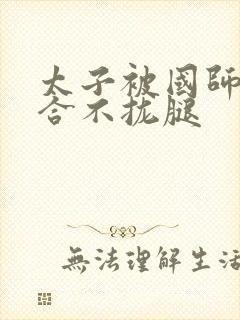 太子被國師
合不拢腿
無法理解生活